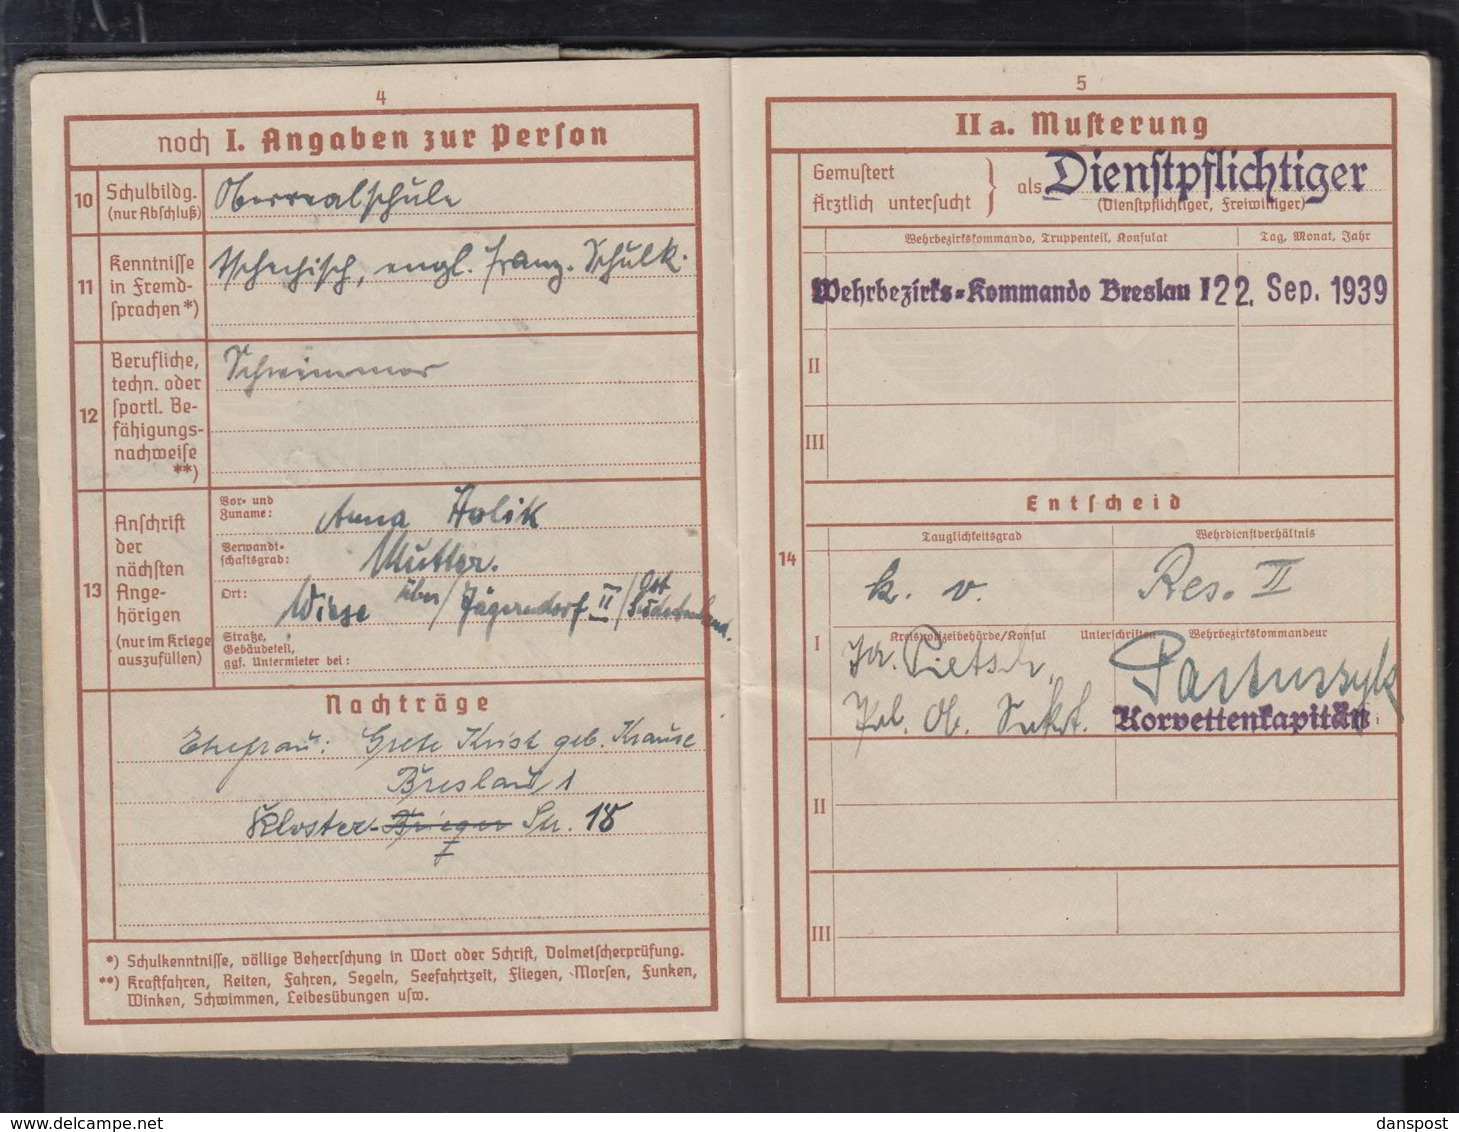 4
noch I. Angaben zur Person
10
Schulbildg.
(nur Abschluß)
Oberrealschule
11
Kenntnisse
in Fremd-
sprachen *)
tschechisch, engl. franz. Schulk.
12
Berufliche,
techn. oder
sportl. Be-
fähigungs-
nachweise
**)
Schwimmer
13
Anschrift
der
nächsten
Ange-
hörigen
(nur im Kriege
auszufüllen)
Vor- und
Zuname:
Anna Holik
Verwandt-
schaftsgrad:
Mutter.
Ort:
Wiese über / Jägerndorf II / Ost
Sudetenland.
Straße,
Gebäudeteil,
ggf. Untermieter bei:
Nachträge
Ehefrau: Grete Krist geb. Krause
Breslau 1
Kloster- Brieger Str. 18
I
*) Schulkenntnisse, völlige Beherrschung in Wort oder Schrift, Dolmetscherprüfung.
**) Kraftfahren, Reiten, Fahren, Segeln, Seefahrtzeit, Fliegen, Morsen, Funken,
Winken, Schwimmen, Leibesübungen usw.
5
II a. Musterung
Gemustert
Ärztlich untersucht
als Dienstpflichtiger
(Dienstpflichtiger, Freiwilliger)
Wehrbezirkskommando, Truppenteil, Konsulat
Tag, Monat, Jahr
Wehrbezirks-Kommando Breslau I 22. Sep. 1939
II
III
Entscheid
14
Tauglichkeitsgrad
Wehrdienstverhältnis
k. v.
Res. II
I
Kreispolizeibehörde/Konsul
Unterschriften
Wehrbezirkskommandeur
Pietsch,
Pol. Ob. Sekt.
Korvettenkapitän
II
III
www.delcampe.net
danspost